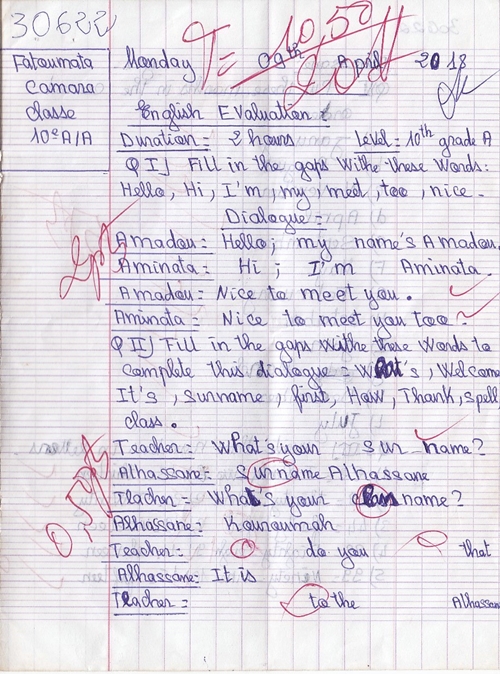 30622
Fatoumata
Camara
classe
10e A/A
Monday 09th April 2018
T = 10,50
20
English EValuation
Duration = 2 hours Level = 10th grade A
Q I) Fill in the gaps Withe these Words:
Hello, Hi, I'm, my, meet, too, nice.
Dialogue =
2pts
Amadou = Hello; my name's Amadou.
Aminata = Hi; I'm Aminata.
Amadou = Nice to meet you.
Aminata = Nice to meet you too.
Q II) Fill in the gaps Withe these Words to
complete this dialogue = What's, Welcome
It's, surname, first, How, Thank, spell
class.
0,50pts
Teacher = What's your surname?
Alhassane = surname Alhassane
Teacher = What's your name?
Alhassane = Kouroumah
Teacher = do you that
Alhassane = It is
Teacher = to the Alhassan